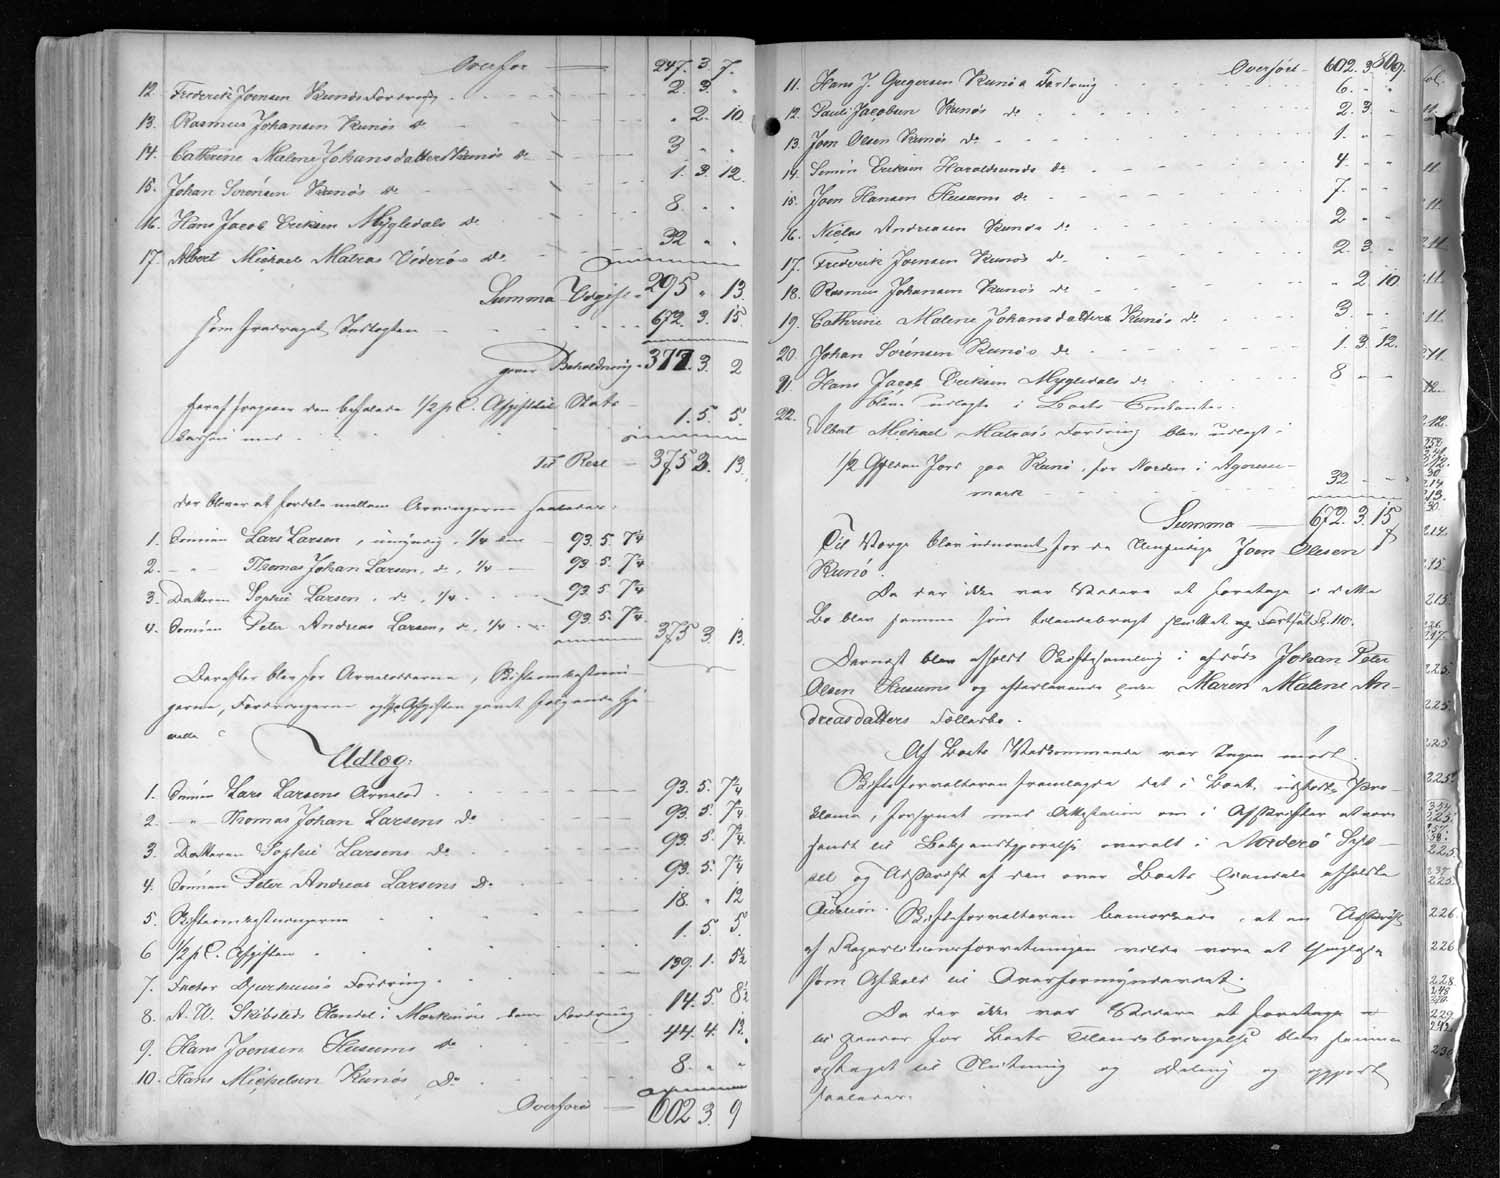 Overført 247. 3. 7.
12. Frederik Joensen Kunøs Fordring 2. 3. "
13. Rasmus Johansen Kunøs do " 2. 10
14. Cathrine Malene Johansdatters Kunøs do 3 " "
15. Johan Sørensen Kunøs do 1. 3. 12.
16. Hans Jacob Eriksen Mygledals do 8 " "
17. Albert Michael Matras Viderøs do 32 " "
Summa Udgift 295 " 13.
som fradraget Indtægten 672. 3. 15
giver Beholdning 377. 3. 2
heraf fragaaer den befalede 1/2 pC. Afgift til Stats
kassen med 1. 5. 5.
Til Rest 375 3. 13.
der bliver at fordele mellem Arvingerne saaledes:
1. Sønnen Lars Larsen, umyndig, 1/4 93. 5. 7¼
2. - " - Thomas Johan Larsen, do, 1/4 93. 5. 7¼
3. Datteren Sophie Larsen, do, 1/4 93. 5. 7¼
4. Sønnen Peter Andreas Larsen, do, 1/4 93. 5. 7¼ 375 3. 13.
Derefter blev for Arvelodderne, Skifteomkostnin
gerne, Fordringerne og Afgiften gjort følgende
Udlæg:
1. Sønnen Lars Larsens Arvelod 93. 5. 7¼
2. - " - Thomas Johan Larsens do 93. 5. 7¼
3. Datteren Sophie Larsens do 93. 5. 7¼
4. Sønnen Peter Andreas Larsens do 93. 5. 7¼
5. Skifteomkostningerne 18. " 12
6 1/2 pC. Afgiften 1. 5. 5
7. Factor Djurhuus's Fordring 139. 1. 5½
8. A. W. Skibsteds Handel i Fordring 14. 5. 8½
9. Hans Joensen Husums do 44. 4. 12.
10. Hans Mickelsen Kunøs do 8. " "
Overføres 602 3. 9
Overført 602. 3. 9.
11. Hans J. Gregersen Kunøs Fordring 6. " "
12. Pauli Jacobsen Kunøs do 2. 3. "
13. Joen Olsen Kunøs do 1. - "
14. Simon Eriksen Haraldsunds do 4. - "
15. Joen Hansen Husums do 7. - "
16. Niclas Andreasen Kunøs do 2 - "
17. Frederik Joensen Kunøs do 2. 3. "
18. Rasmus Johansen Kunøs do " 2 10
19. Cathrine Malene Johansdatters Kunøs do 3 - -
20. Johan Sørensen Kunøs do 1. 3. 12.
21. Hans Jacob Eriksen Mygledals do 8 - -
blev udlagt i Boets Contanter.
22. Albert Michael Matras's Fordring blev udlagt i
1/2 Gylden Jord paa Kunø, for Norden i
mark 32 - -
Summa 672. 3. 15
Til Værge blev udnævnt for de Umyndige Joen Olesen
Kunø.
Da der ikke var Videre at foretage i dette
Bo blev samme som tilendebragt sluttet og Fortsat P. 110.
Dernæst blev afholdt Skiftesamling i afdøde Johan Peter
Olsen Husums og efterlevende Enke Maren Malene An-
dreasdatters Fællesbo.
Af Boets Vedkommende var Ingen mødt.
Skifteforvalteren fremlagde det i Boet udstedte Pro-
klama, forsynet med Attestation om i Afskrifter at være
sendt til Bekjendtgjørelse overalt i Norderø Sys-
sel og Udskrift af den over Boets Eiendele afholdte
Auction. Skifteforvalteren bemærkede, at en Udskrift
af Repartitionsforretningen vilde være at
som til Overformynderiet.
Da der ikke var Videre at foretage
for Boets Tilendebringelse blev samme
optaget til Slutning og Deling og opgjort
saaledes: